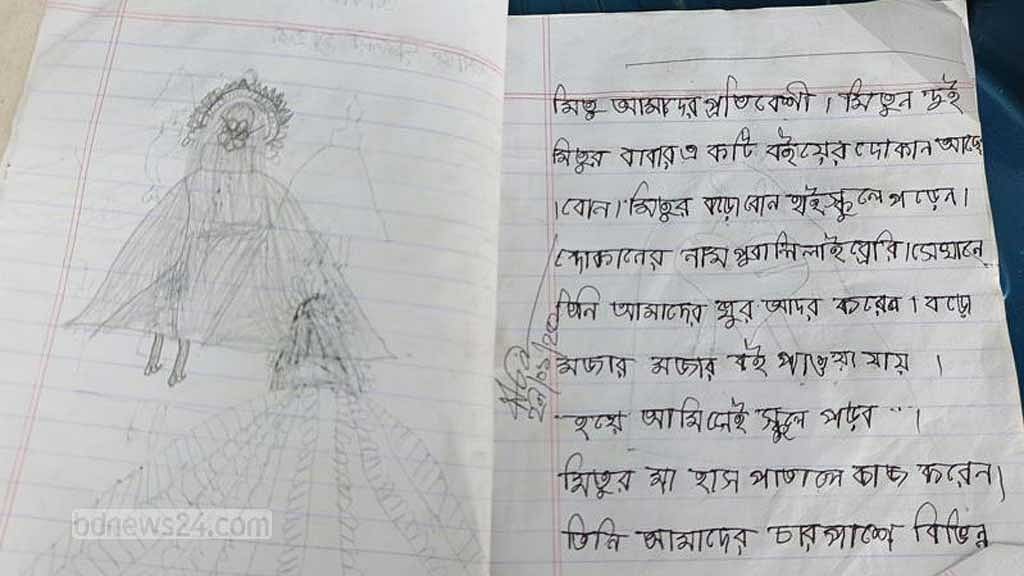 মিতু আমাদের প্রতিবেশী । মিতুন দুই
মিতুর বাবার এ কটি বইয়ের দোকান আছে
।বোন। মিতুর বড়ো বোন হাইস্কুলে পড়েন।
দোকানের নাম পুরা লিলাইব্রেরি। সেখানে
তিনি আমাদের খুব আদর করেন। বড়ো
মজার মজার বই পাওয়া যায় ।
হয়ে আমি সেই স্কুলে পড়ব ।
মিতুর মা হাস পাতালে কাজ করেন।
তিনি আমাদের চারপাশে বিভিন্ন
bdnews24.com